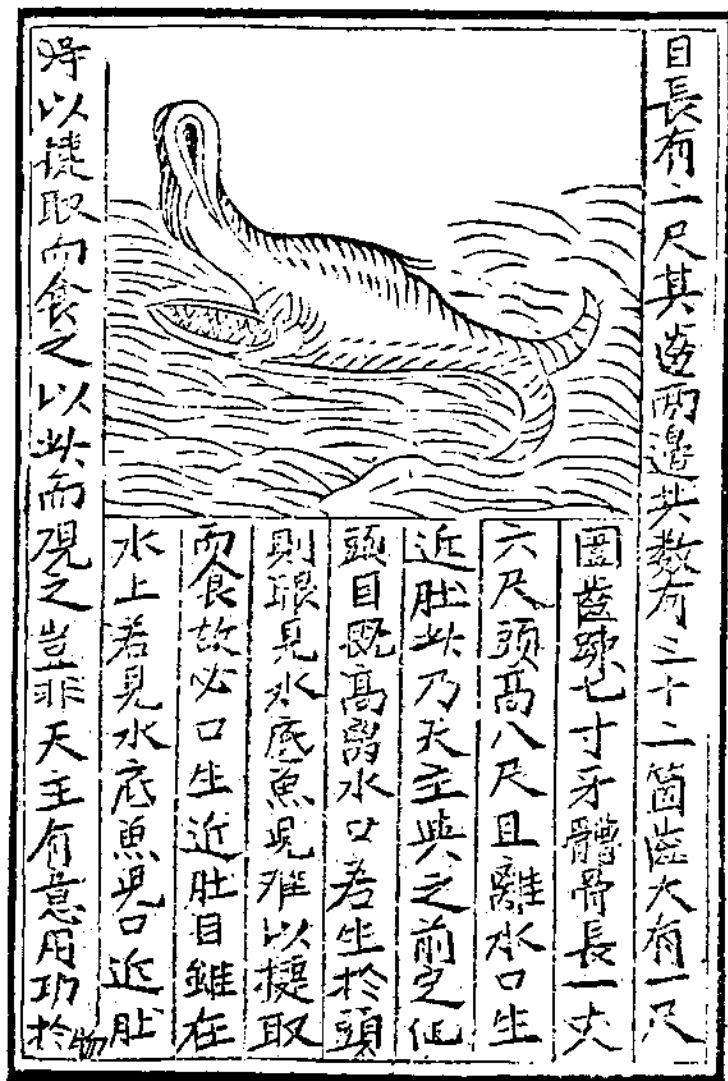 目長有二尺其齒兩邊共數有三十二箇齒大有一尺
圍齒踈七寸牙體骨長一丈
六尺頭高八尺且離水口生
近肚此乃天主與之前定他
頭目既高离水口若生於頭
則眼見水底魚児难以捷取
而食故必口生近肚目雖在
水上若見水底魚児口近肚
淂以捷取而食之以此而𮗚之豈非天主有意用功於物